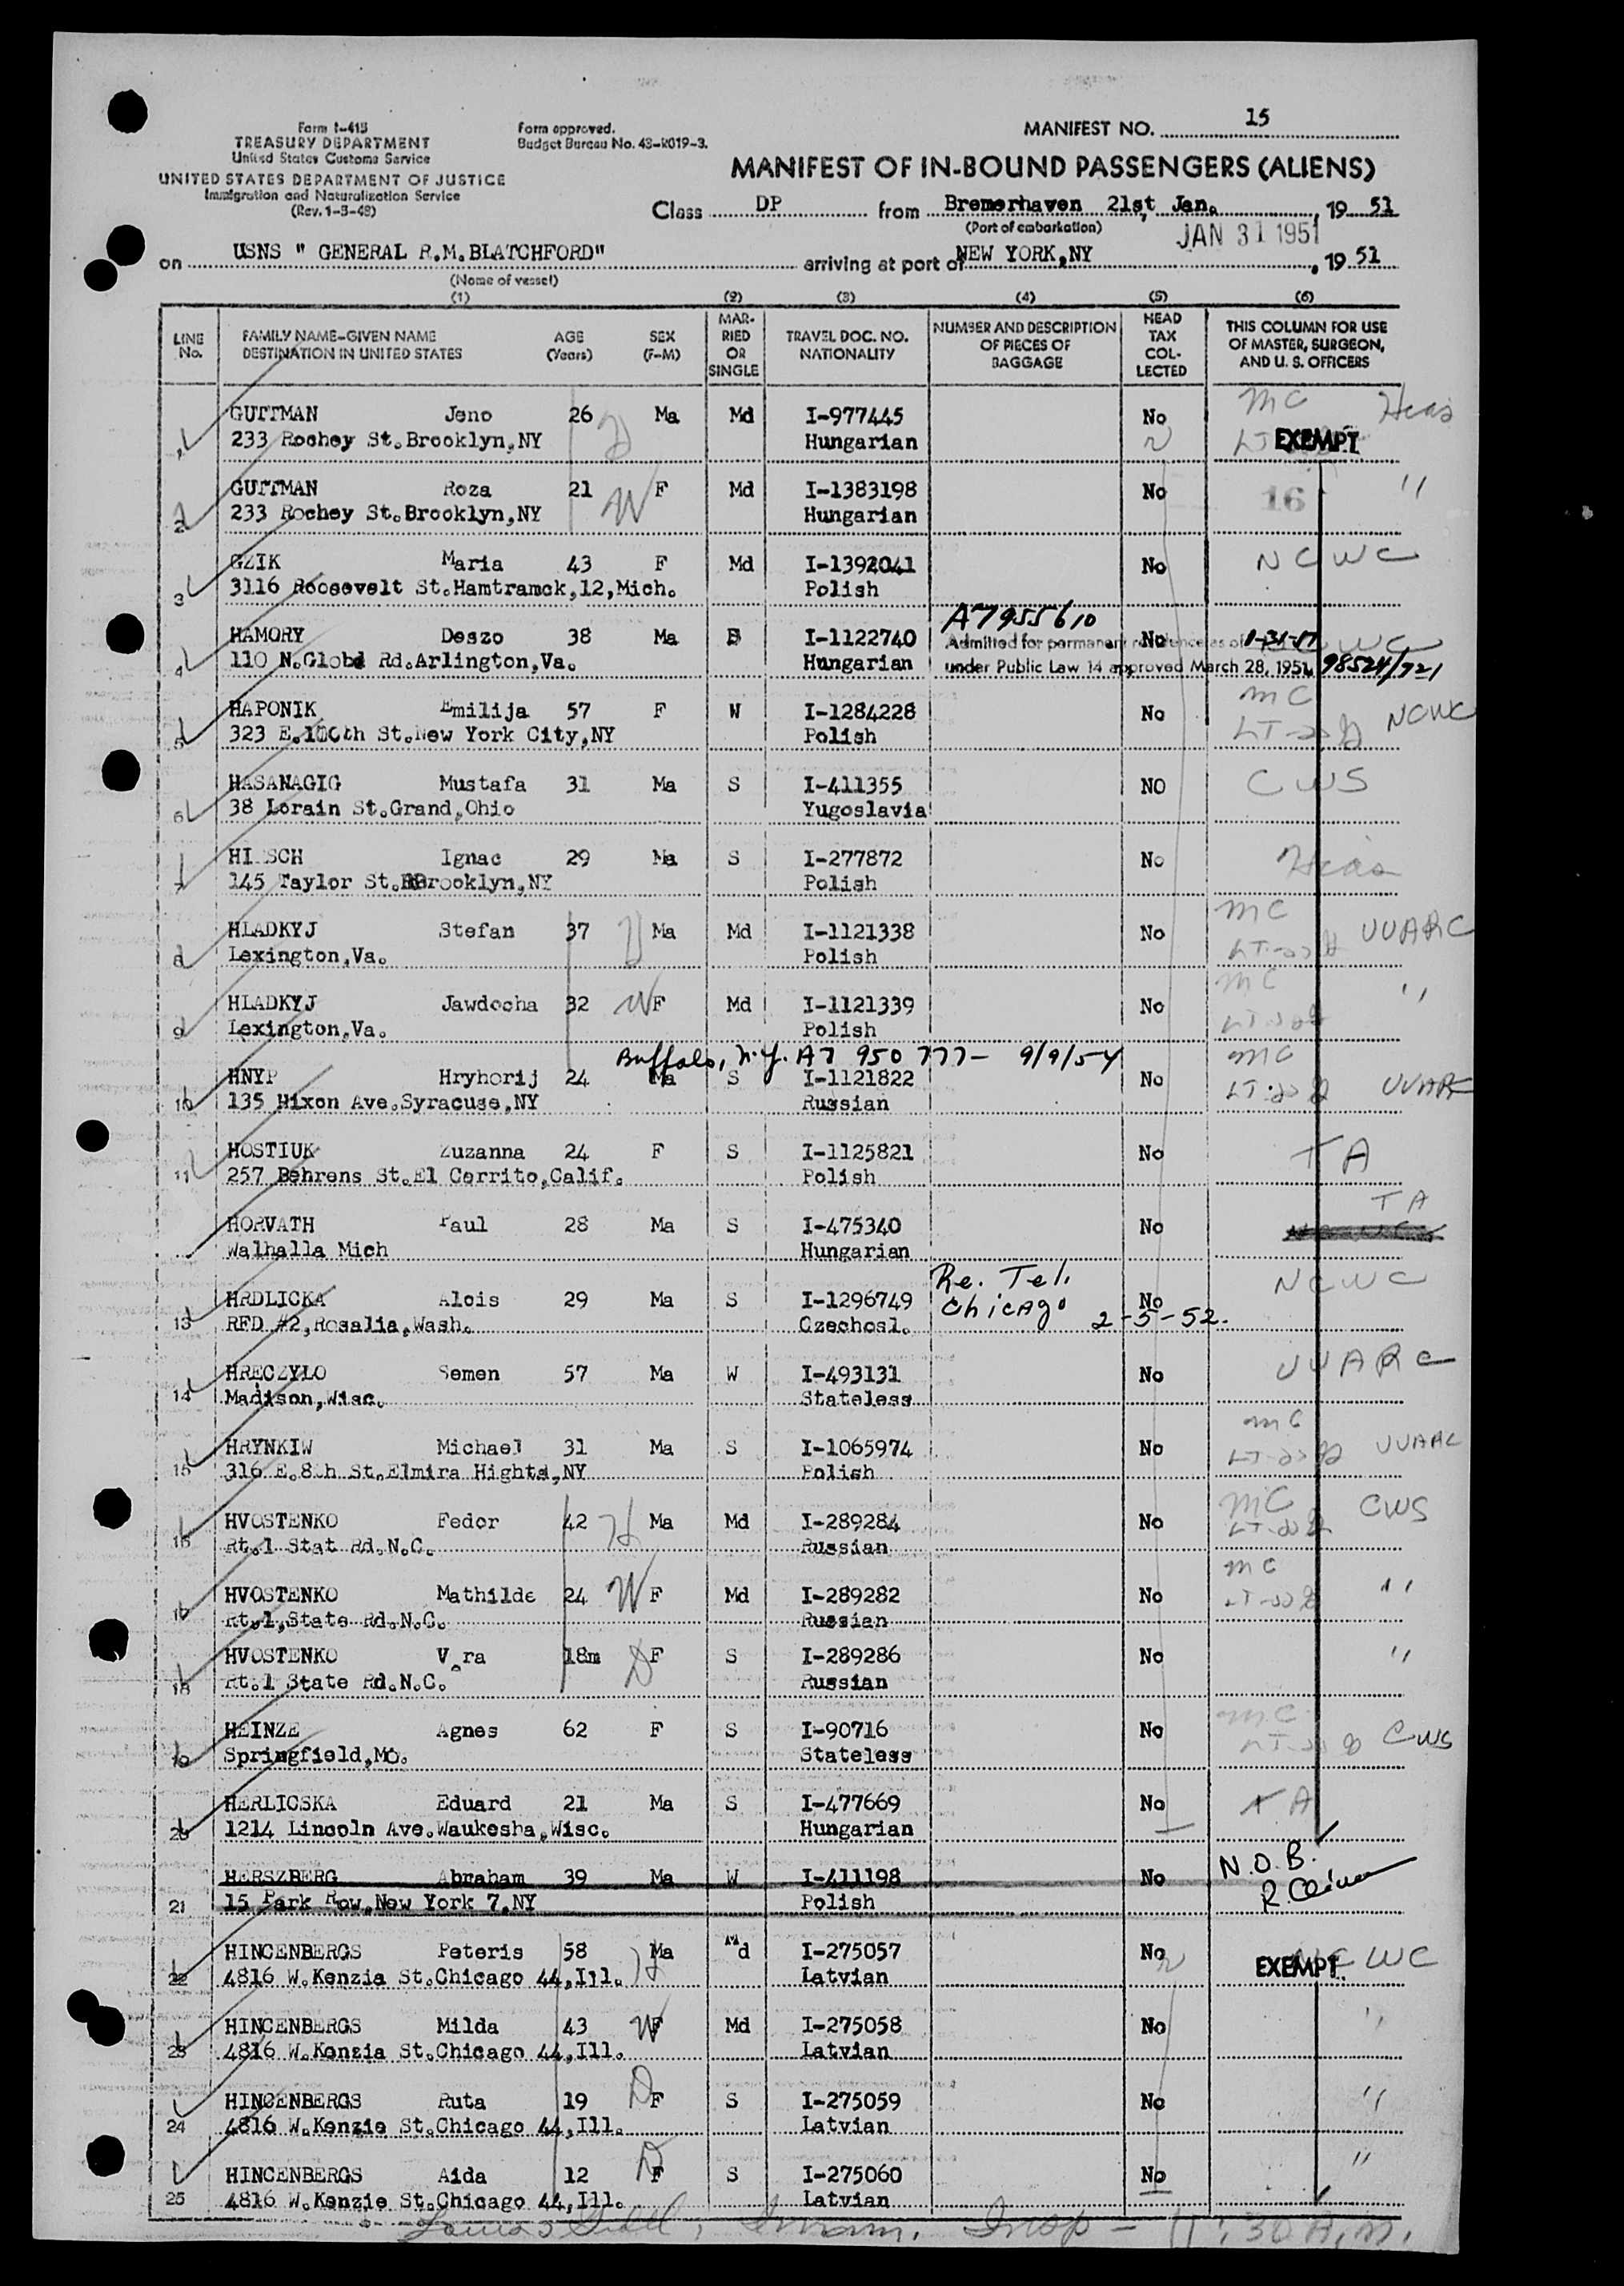 MANIFEST NO. 15
Form I-415
TREASURY DEPARTMENT
United States Customs Service
UNITED STATES DEPARTMENT OF JUSTICE
Immigration and Naturalization Service
(Rev. 1-3-48)
Form approved.
Budget Bureau No. 43-R019-3.
MANIFEST OF IN-BOUND PASSENGERS (ALIENS)
Class DP from Bremerhaven 21st, Jan. , 19 51
(Port of embarkation)
JAN 31 1951
on USNS " GENERAL R.M.BLATCHFORD" arriving at port of NEW YORK,NY , 19 51
(Name of vessel)
(1) (2) (3) (4) (5) (6)
LINE No. FAMILY NAME-GIVEN NAME DESTINATION IN UNITED STATES AGE (Years) SEX (F-M) MAR-RIED OR SINGLE TRAVEL DOC. NO. NATIONALITY NUMBER AND DESCRIPTION OF PIECES OF BAGGAGE HEAD TAX COL-LECTED THIS COLUMN FOR USE OF MASTER, SURGEON, AND U. S. OFFICERS
GUTTMAN Jeno 26 Ma Md I-977445 No MC Hias
233 Rochey St.Brooklyn,NY Hungarian EXEMPT
GUTTMAN Roza 21 W F Md I-1383198 No 16 "
2 233 Rochey St.Brooklyn,NY Hungarian
GZIK Maria 43 F Md I-1392041 No NCWC
3 3116 Roosevelt St.Hamtramck,12,Mich. Polish
A7955610
HAMORY Deszo 38 Ma I-1122740 No
Admitted for permanent residence as of 1-31-51
4 110 N.Globd Rd.Arlington,Va. Hungarian under Public Law 14 approved March 28, 1951, 98524/721
HAPONIK Emilija 57 F W I-1284228 No MC NCWC
5 323 E.100th St.New York City,NY Polish
HASANAGIG Mustafa 31 Ma S I-411355 NO CWS
6 38 Lorain St.Grand,Ohio Yugoslavia
HI SCH Ignac 29 Ma S I-277872 No Hias
7 145 Taylor St.Brooklyn,NY Polish
HLADKYJ Stefan 37 H Ma Md I-1121338 No MC UUARC
8 Lexington,Va. Polish
HLADKYJ Jawdocha 32 W F Md I-1121339 No MC "
9 Lexington,Va. Polish
Buffalo, N.Y. A7 950 777- 9/9/54
HNYP Hryhorij 24 Ma S I-1121822 No MC UUARC
10 135 Hixon Ave.Syracuse,NY Russian
HOSTIUK Zuzanna 24 F S I-1125821 No TA
11 257 Behrens St.El Cerrito,Calif. Polish
HORVATH Paul 28 Ma S I-475340 No TA
Walhalla Mich Hungarian
HRDLICKA Alois 29 Ma S I-1296749 Re. Tel. No NCWC
13 RFD #2,Rosalia,Wash. Czechosl. Chicago 2-5-52.
HRECZYLO Semen 57 Ma W I-493131 No UUARC
14 Madison,Wisc. Stateless
HRYNKIW Michael 31 Ma S I-1065974 No MC UUARC
15 316 E.8th St.Elmira Hights,NY Polish
HVOSTENKO Fedor 42 H Ma Md I-289284 No MC CWS
16 Rt.1 Stat Rd.N.C. Russian
HVOSTENKO Mathilde 24 W F Md I-289282 No MC "
Rt.1,State Rd.N.C. Russian
HVOSTENKO V ra 18m D F S I-289286 No "
18 Rt.1 State Rd.N.C. Russian
HEINZE Agnes 62 F S I-90716 No MC CWS
19 Springfield,Mo. Stateless
HERLICSKA Eduard 21 Ma S I-477669 No TA
20 1214 Lincoln Ave.Waukesha,Wisc. Hungarian
HERSZBERG Abraham 39 Ma W I-411198 No N.O.B.
21 15 Park Row,New York 7,NY Polish
HINCENBERGS Peteris 58 Ma Md I-275057 No NCWC
22 4816 W.Kenzia St.Chicago 44,Ill. H Latvian EXEMPT
HINCENBERGS Milda 43 W F Md I-275058 No "
23 4816 W.Kenzia St.Chicago 44,Ill. Latvian
HINCENBERGS Ruta 19 D F S I-275059 No "
24 4816 W.Kenzie St.Chicago 44,Ill. Latvian
HINCENBERGS Aida 12 D F S I-275060 No "
25 4816 W.Kenzie St.Chicago 44,Ill. Latvian
Immm. Insp - 11:30 A.M.